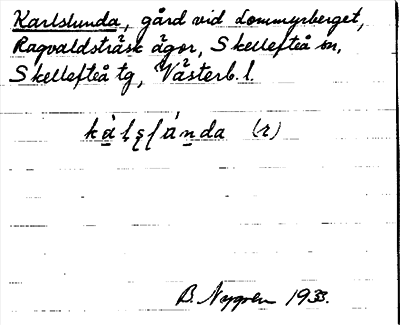 Karlslunda, gård vid Lommyrberget,
Ragvaldsträsk ägor, Skellefteå sn,
Skellefteå tg, Västerb. l.
(r)
B. Nygren 1933.